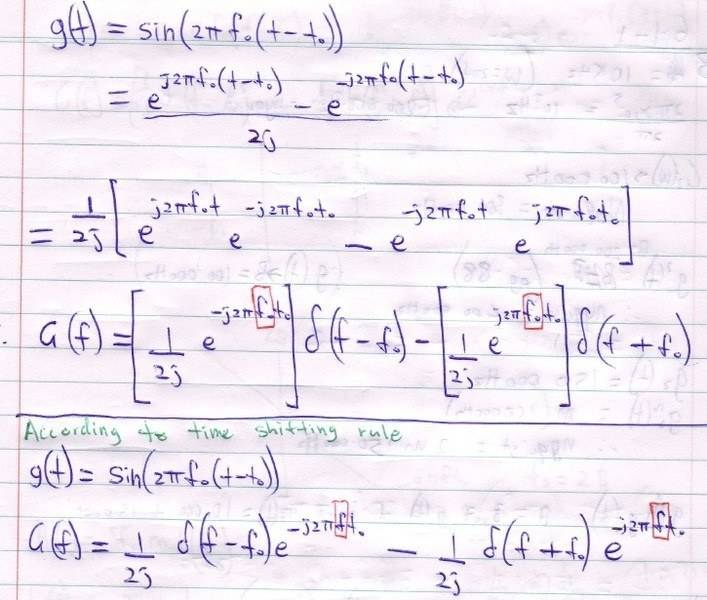 g(t) = sin(2π f₀(t−t₀))
= (e^{j2πf₀(t−t₀)} − e^{−j2πf₀(t−t₀)}) / 2j
= 1/2j [e^{j2πf₀t} e^{−j2πf₀t₀} − e^{−j2πf₀t} e^{j2πf₀t₀}]
G(f) = [1/2j e^{−j2πf₀t₀}] δ(f−f₀) − [1/2j e^{j2πf₀t₀}] δ(f+f₀)
According to time shifting rule
g(t) = sin(2πf₀(t−t₀))
G(f) = 1/2j δ(f−f₀)e^{−j2πft₀} − 1/2j δ(f+f₀) e^{−j2πft₀}